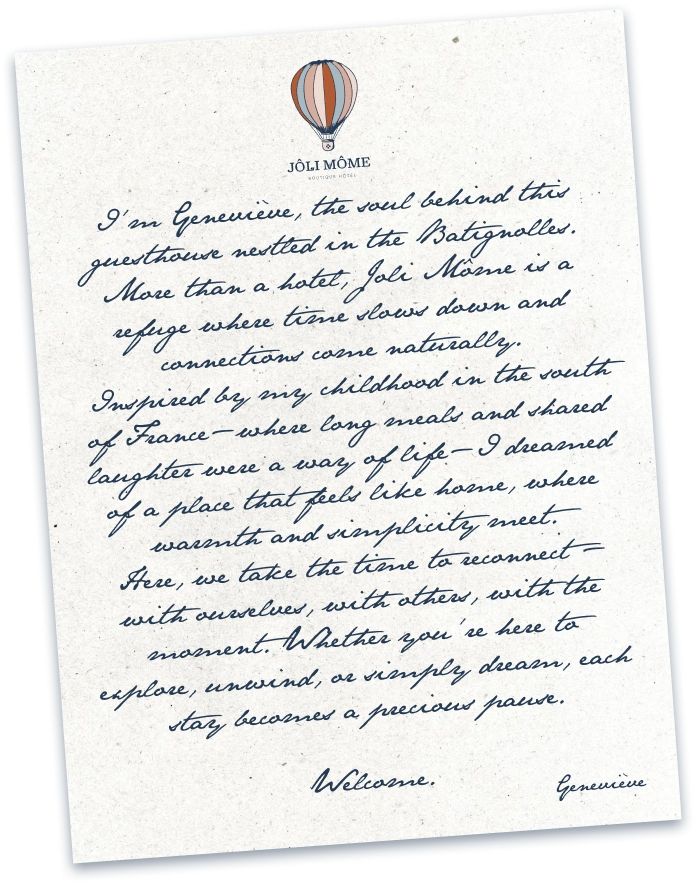 JÔLI MÔME
BOUTIQUE HÔTEL
I'm Geneviève, the soul behind this
guesthouse nestled in the Batignolles.
More than a hotel, Joli Môme is a
refuge where time slows down and
connections come naturally.
Inspired by my childhood in the south
of France—where long meals and shared
laughter were a way of life—I dreamed
of a place that feels like home, where
warmth and simplicity meet.
Here, we take the time to reconnect —
with ourselves, with others, with the
moment. Whether you're here to
explore, unwind, or simply dream, each
stay becomes a precious pause.
Welcome.
Geneviève